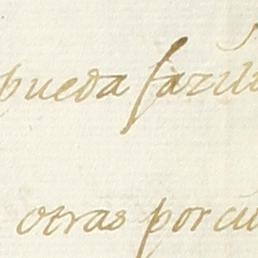 pueda fazili
otras por cu